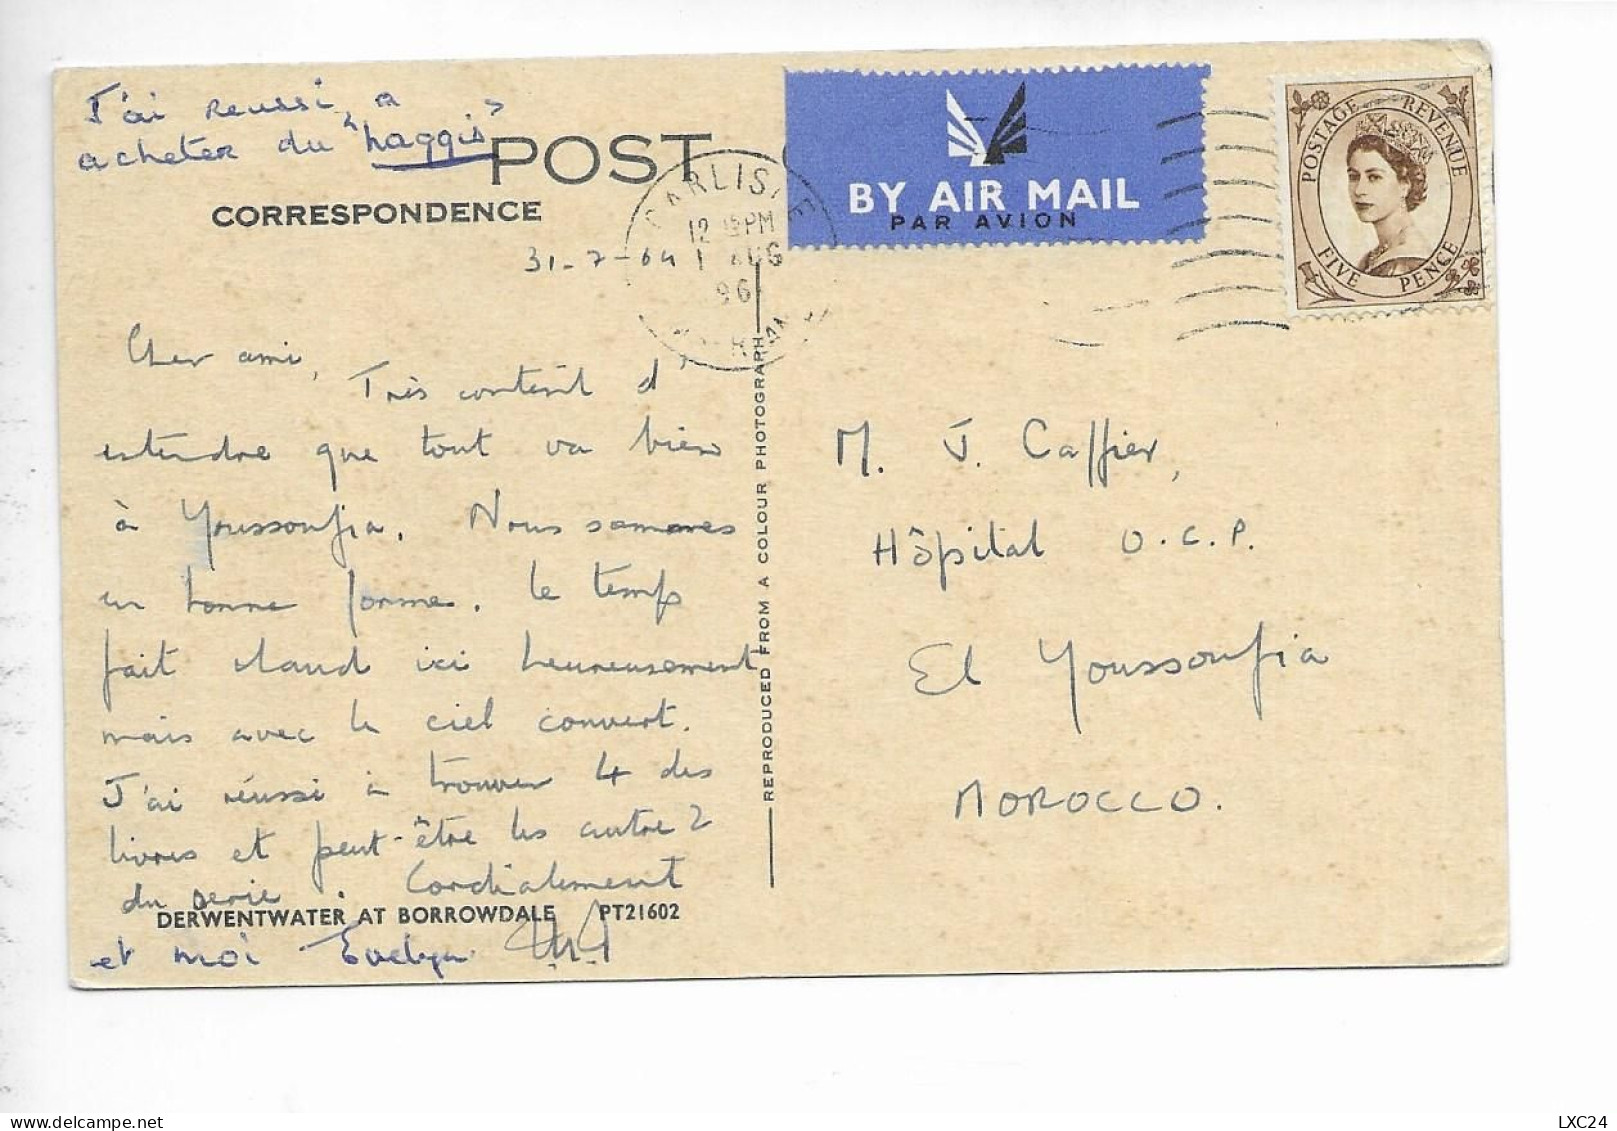 J'ai reussi a
acheter du "haggis"
POST
CORRESPONDENCE
31-7-64
CARLISLE
12 15 PM
1 AUG
196
BY AIR MAIL
PAR AVION
POSTAGE REVENUE
FIVE PENCE
Cher ami,
Très content d'
entendre que tout va bien
à Youssoufia. Nous sommes
en bonne forme. Le temps
fait chaud ici heureusement
mais avec le ciel couvert.
J'ai réussi à trouver 4 des
livres et peut-être les autre 2
du serie. Cordialement
DERWENTWATER AT BORROWDALE PT21602
et moi Evelyn
REPRODUCED FROM A COLOUR PHOTOGRAPH
M. J. Caffier,
Hôpital O.C.P.
El Youssoufia
MOROCCO.
LXC24